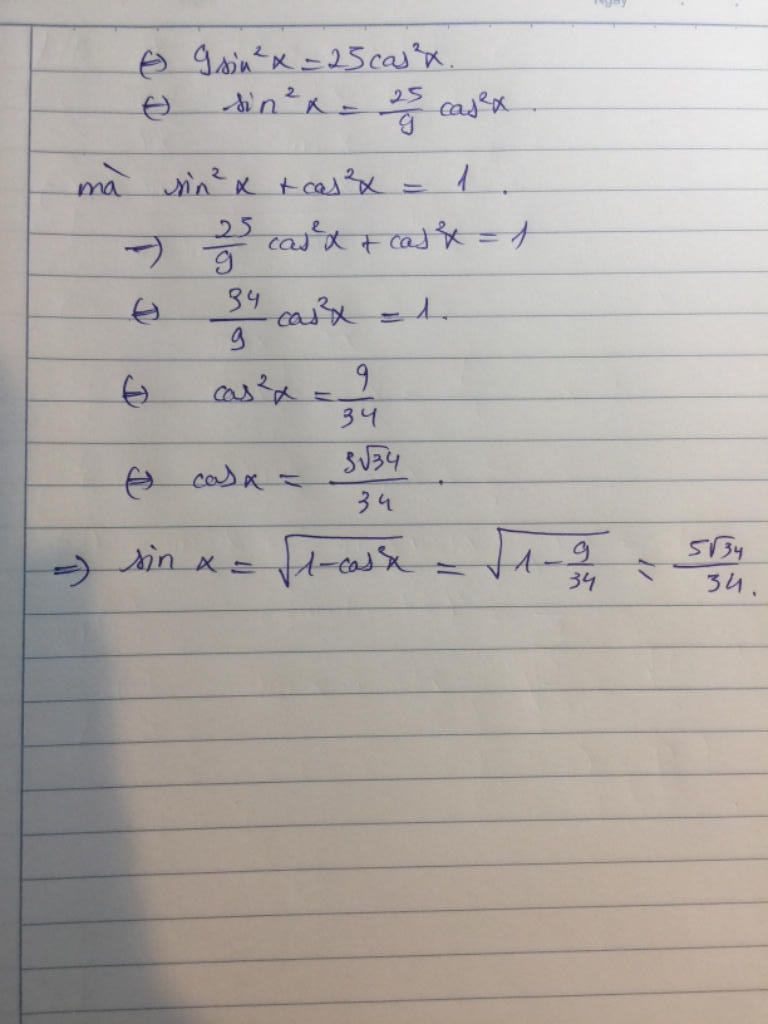 Ngày
⇔ 9sin²x = 25cos²x.
⇔ sin²x = 25/9 cos²x.
mà sin²x + cos²x = 1.
→ 25/9 cos²x + cos²x = 1
⇔ 34/9 cos²x = 1.
⇔ cos²x = 9/34
⇔ cosx = 3√34/34.
⇒ sin x = √(1-cos²x) = √(1-9/34) = 5√34/34.